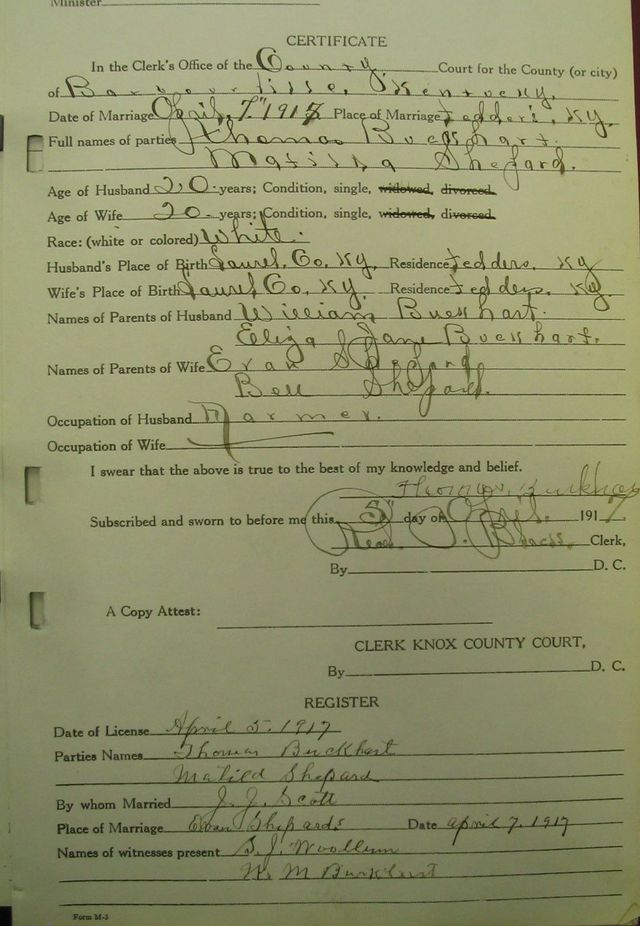 Minister
CERTIFICATE
In the Clerk's Office of the County Court for the County (or city)
of Barbourville, Kentucky.
Date of Marriage April, 7" 1917 Place of Marriage Fedders, Ky.
Full names of parties Thomas Buckhart.
Matilda Shepard.
Age of Husband 20 years; Condition, single, widowed, divorced.
Age of Wife 20 years; Condition, single, widowed, divorced.
Race: (white or colored) White.
Husband's Place of Birth Laurel, Co, Ky. Residence Fedders, Ky
Wife's Place of Birth Laurel Co, Ky. Residence Fedders, Ky.
Names of Parents of Husband William Buckhart.
Eliza Jane Buckhart.
Names of Parents of Wife Evan Shepard
Bell Shepard.
Occupation of Husband Farmer.
Occupation of Wife
I swear that the above is true to the best of my knowledge and belief.
Thomas Burkhart
Subscribed and sworn to before me this 5" day of April. 1917
Read Clerk,
By D. C.
A Copy Attest:
CLERK KNOX COUNTY COURT,
By D. C.
REGISTER
Date of License April 5. 1917
Parties Names Thomas Buckhart
Matild Shepard
By whom Married J. J. Scott
Place of Marriage Evan Shepards Date april 7. 1917
Names of witnesses present S. J. Woollum
W. M Burkhart
Form M-3